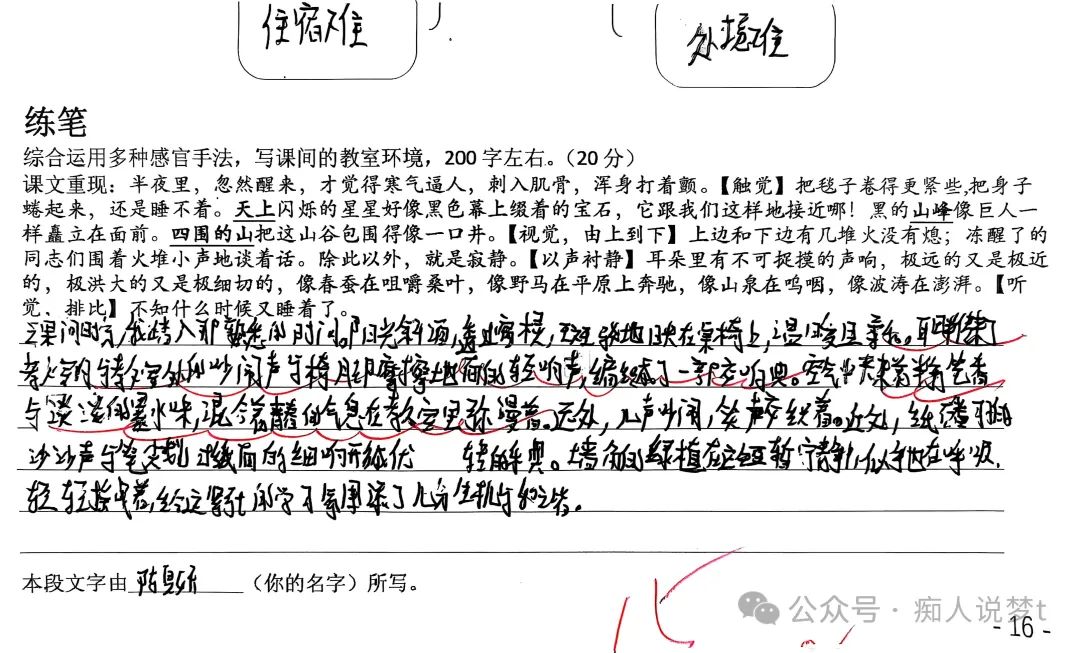 住宿难
处境难
练笔
综合运用多种感官手法，写课间的教室环境，200 字左右。（20 分）
课文重现：半夜里，忽然醒来，才觉得寒气逼人，刺入肌骨，浑身打着颤。【触觉】把毯子卷得更紧些,把身子
蜷起来，还是睡不着。天上闪烁的星星好像黑色幕上缀着的宝石，它跟我们这样地接近哪！黑的山峰像巨人一
样矗立在面前。四围的山把这山谷包围得像一口井。【视觉，由上到下】上边和下边有几堆火没有熄；冻醒了的
同志们围着火堆小声地谈着话。除此以外，就是寂静。【以声衬静】耳朵里有不可捉摸的声响，极远的又是极近
的，极洪大的又是极细切的，像春蚕在咀嚼桑叶，像野马在平原上奔驰，像山泉在呜咽，像波涛在澎湃。【听
觉、排比】不知什么时候又睡着了。
课间时分,我转入那熟悉的 阳光斜洒,透过窗棂,斑驳地映在桌椅上,温暖且柔和。
教室 吵闹声与椅脚摩擦地面的轻响声,编织了一 交响典。空气中 着 笔香
与淡淡的墨水味,混合着 的气息在教室里弥漫着。远处,人声吵闹,笑声交织着。近处,纸
沙沙声与笔尖划过纸面的细响 。墙角的绿植在这短暂宁静 似乎也在呼吸,
轻轻摇曳着,给这紧 的学习氛围添了几分生机与和谐。
本段文字由 陈 （你的名字）所写。
15
公众号 · 痴人说梦t
- 16 -